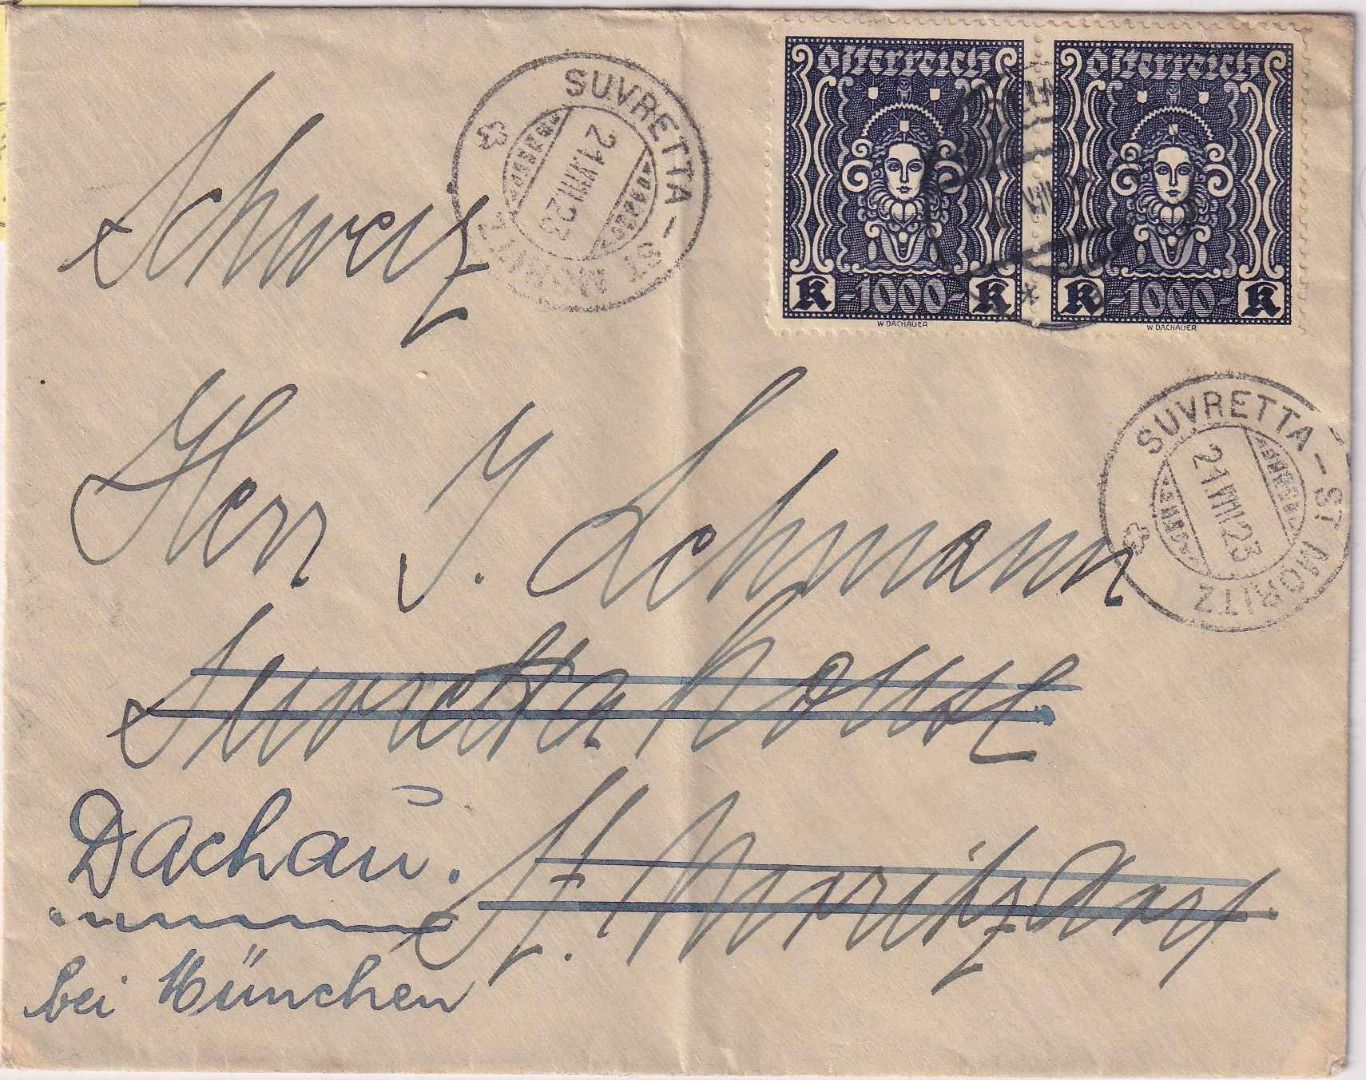 Österreich Österreich
K -1000- K K -1000- K
W. DACHAUER W. DACHAUER
SUVRETTA - ST. MORITZ
21.VIII.23
Schweiz
SUVRETTA - ST. MORITZ
21.VIII.23
Herr J. Lehmann
Suvretta House
St. Moritz Dorf
Dachau.
bei München